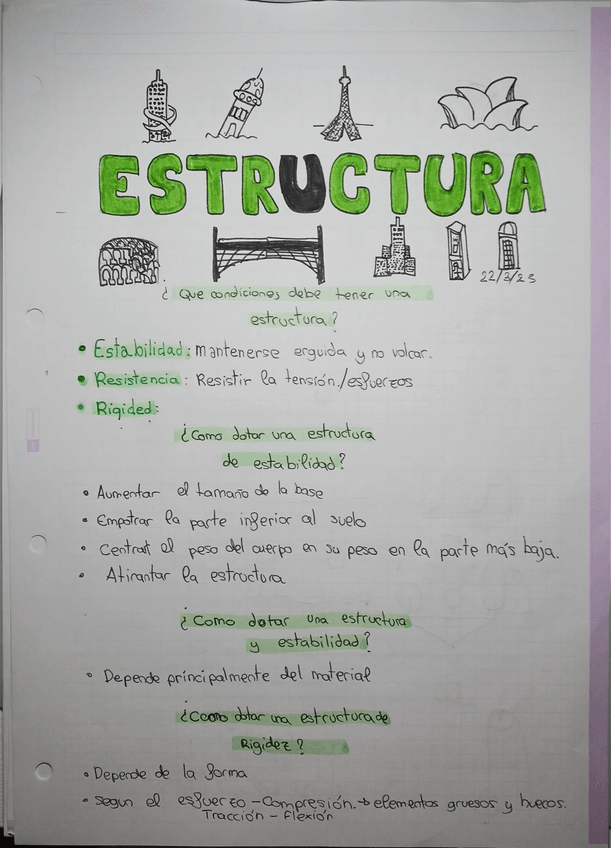 ESTRUCTURA
22/3/23
¿Que condiciones debe tener una
estructura?
• Estabilidad: Mantenerse erguida y no volcar.
• Resistencia: Resistir la tensión/esfuerzos
• Rigided:
¿Como dotar una estructura
de estabilidad?
• Aumentar el tamaño de la base
• Empotrar la parte inferior al suelo
• Centrar el peso del cuerpo en su peso en la parte más baja.
• Atirantar la estructura
¿Como dotar una estructura
y estabilidad?
• Depende principalmente del material
¿Como dotar una estructura de
Rigidez?
• Depende de la forma
• segun el esfuerzo - Compresión. → elementos gruesos y huecos.
Tracción - Flexión